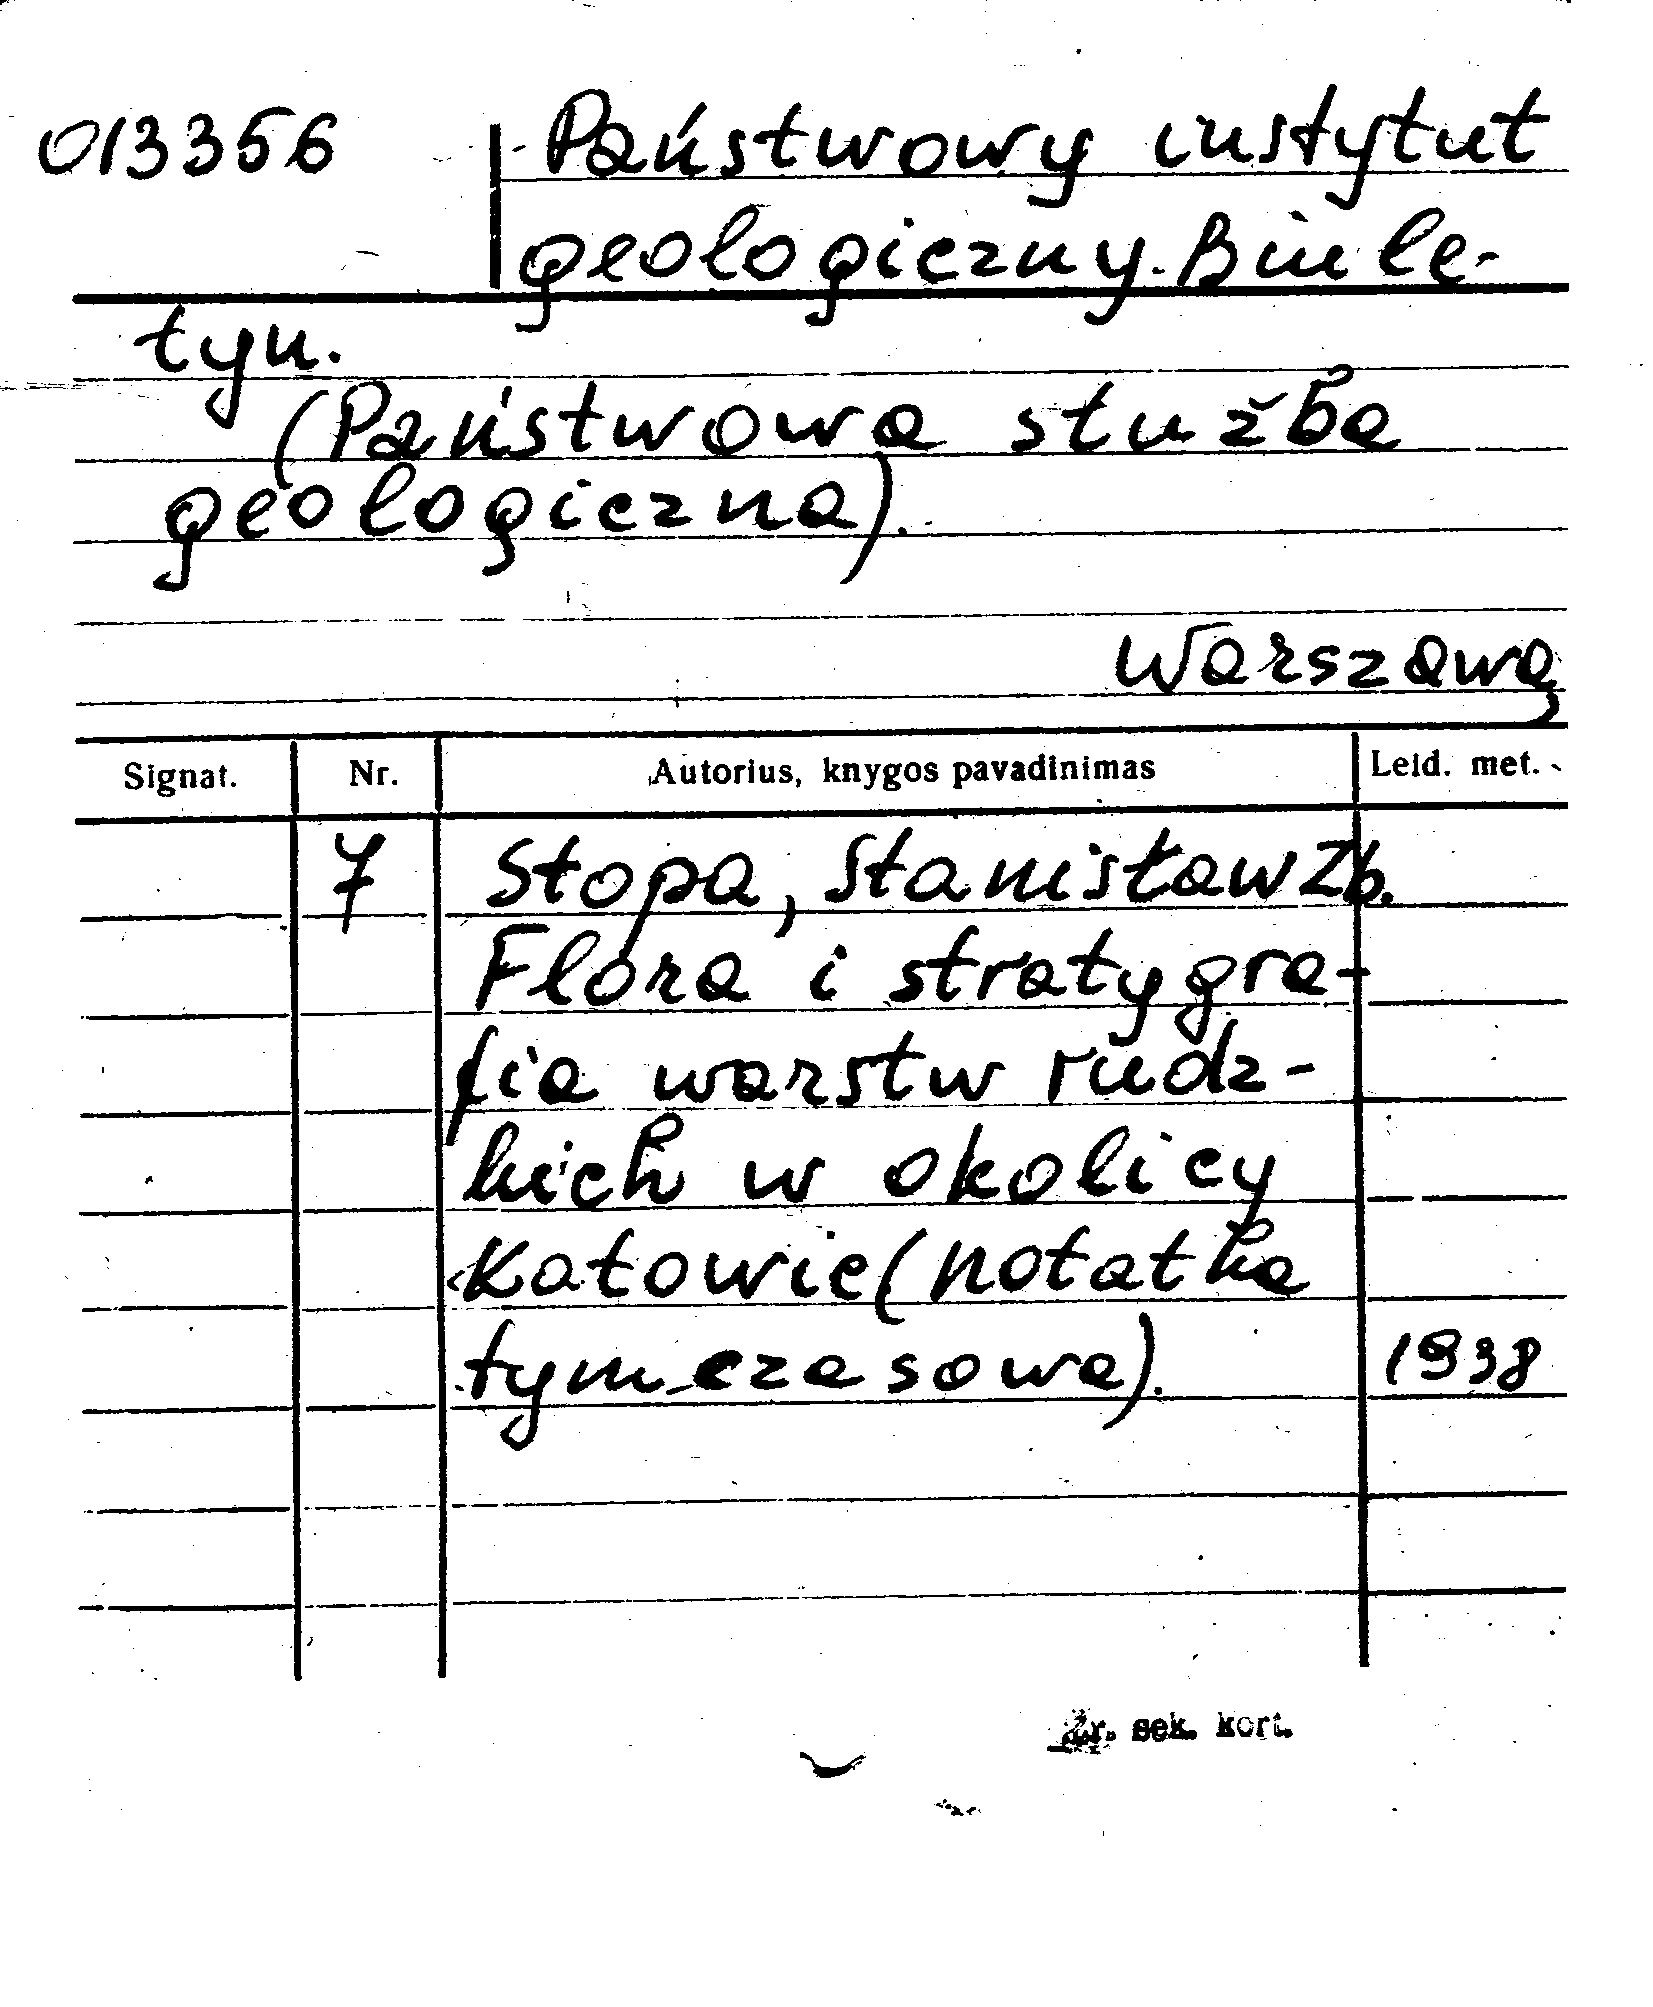 013356
Państwowy instytut
geologiczny. Biule-
tyn.
(Państwowa służba
geologiczna).
Warszawa
Signat. Nr. Autorius, knygos pavadinimas Leid. met.
7 Stopa, Stanisław Zb.
Flora i stratygra-
fia warstw rudz-
kich w okolicy
Katowic (notatka
tymczasowa). 1938
Žr. sek. kort.